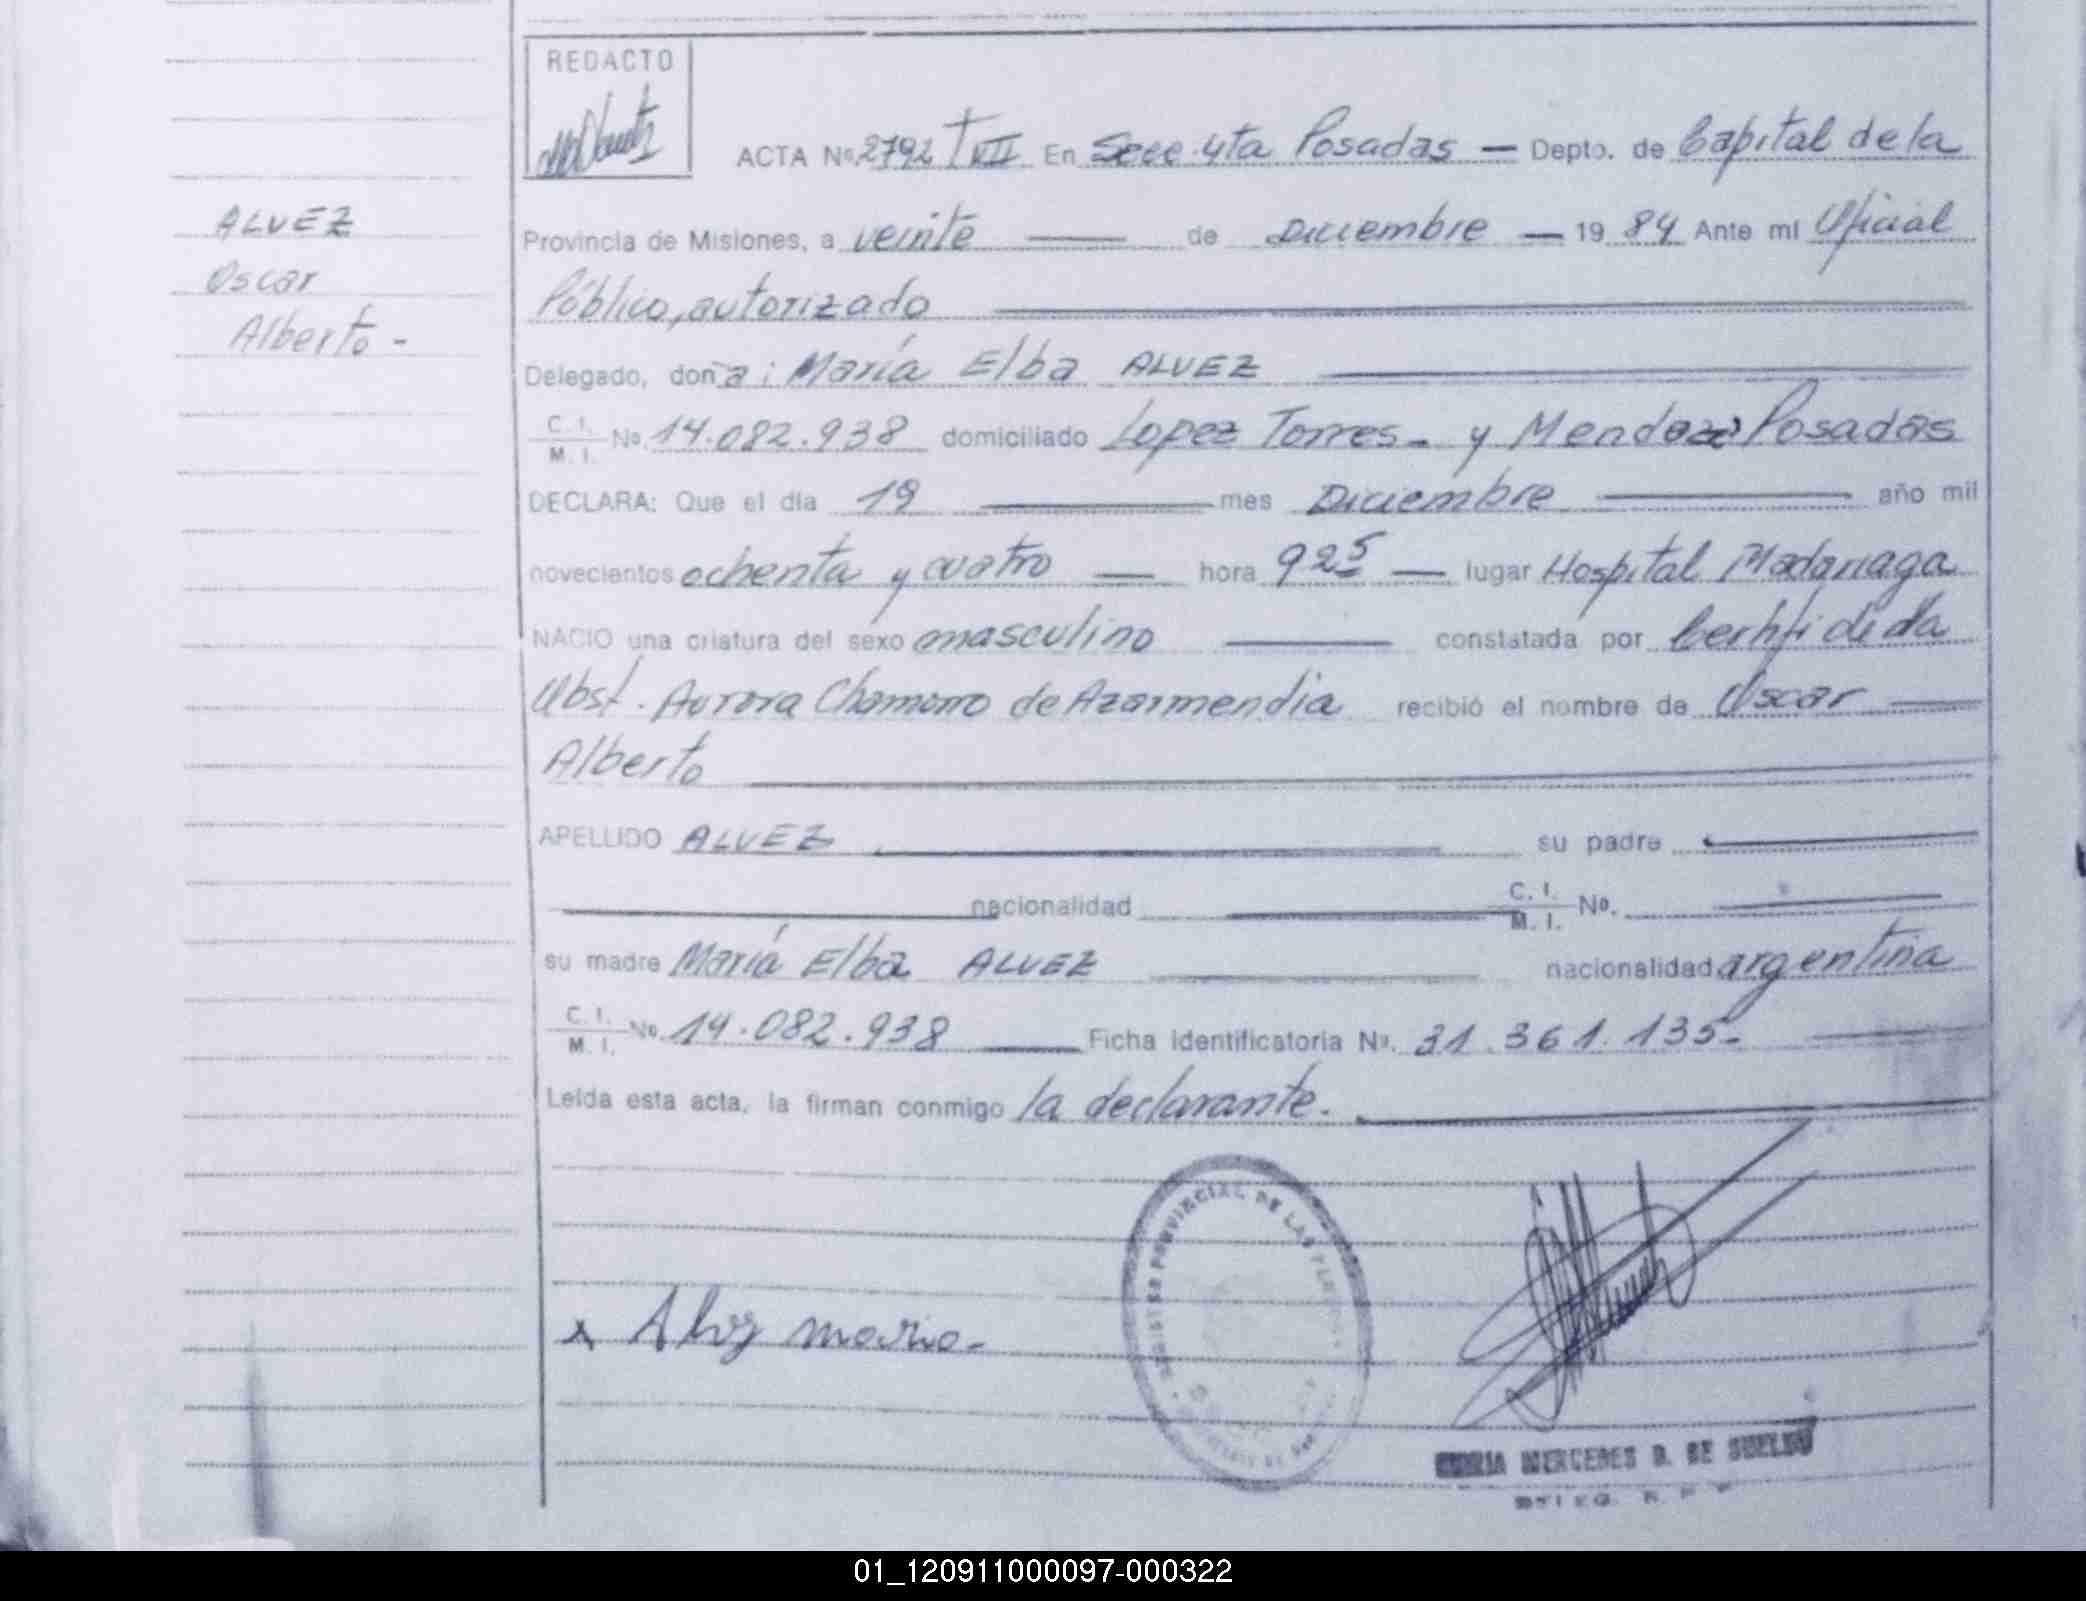 REDACTO
ACTA Nº 2792 T VII En Secc 4ta Posadas — Depto. de Capital de la
ALVEZ
Oscar
Alberto -
Provincia de Misiones, a veinte — de Diciembre — 19 84 Ante mí Oficial
Público, autorizado
Delegado, doña: María Elba ALVEZ
C. I. M. I. No. 14.082.938 domiciliado Lopez Torres - y Mendoza Posadas
DECLARA: Que el día 19 mes Diciembre año mil
novecientos ochenta y cuatro — hora 925 — lugar Hospital Madariaga
NACIO una criatura del sexo masculino constatada por Certifi de la
Obst. Aurora Chamorro de Azarmendia recibió el nombre de Oscar
Alberto
APELLIDO ALVEZ su padre
nacionalidad C. I. M. I. No.
su madre María Elba ALVEZ nacionalidad argentina
C. I. M. I. No. 14.082.938 Ficha identificatoria Nº. 31.361.135-
Leída esta acta, la firman conmigo la declarante.
REGISTRO PROVINCIAL DE LAS PERSONAS
x Alvz mario -
MARIA MERCEDES D. DE SUELDO
01_120911000097-000322